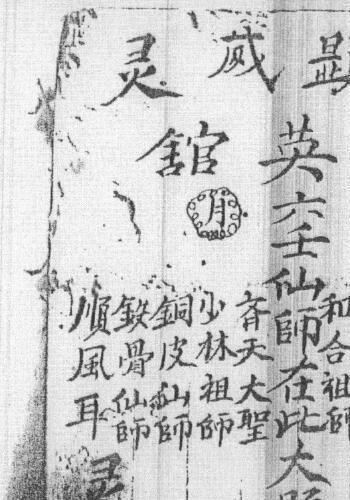 显威灵
舘
月
和合祖師
英六壬仙師在此大
斉天大聖
少林祖師
銅皮仙師
鉄骨仙師
順風耳
灵